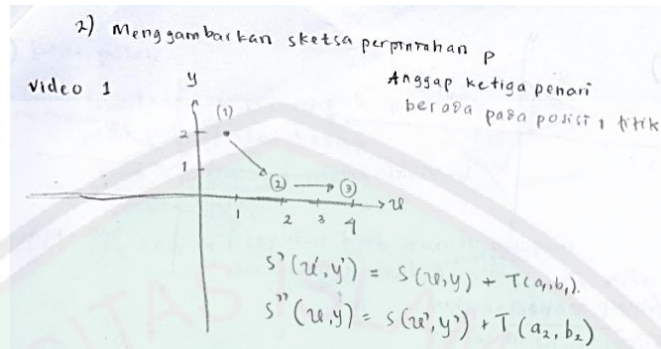 2) Menggambarkan sketsa perpintahan P
Video 1
Anggap ketiga penari
berada pada posisi 1 titik
y
(1)
2
1
(2) → (3)
x
1 2 3 4
S'(x',y') = S(x,y) + T(a₁,b₁).
S"(x,y) = S(x',y') + T(a₂,b₂)